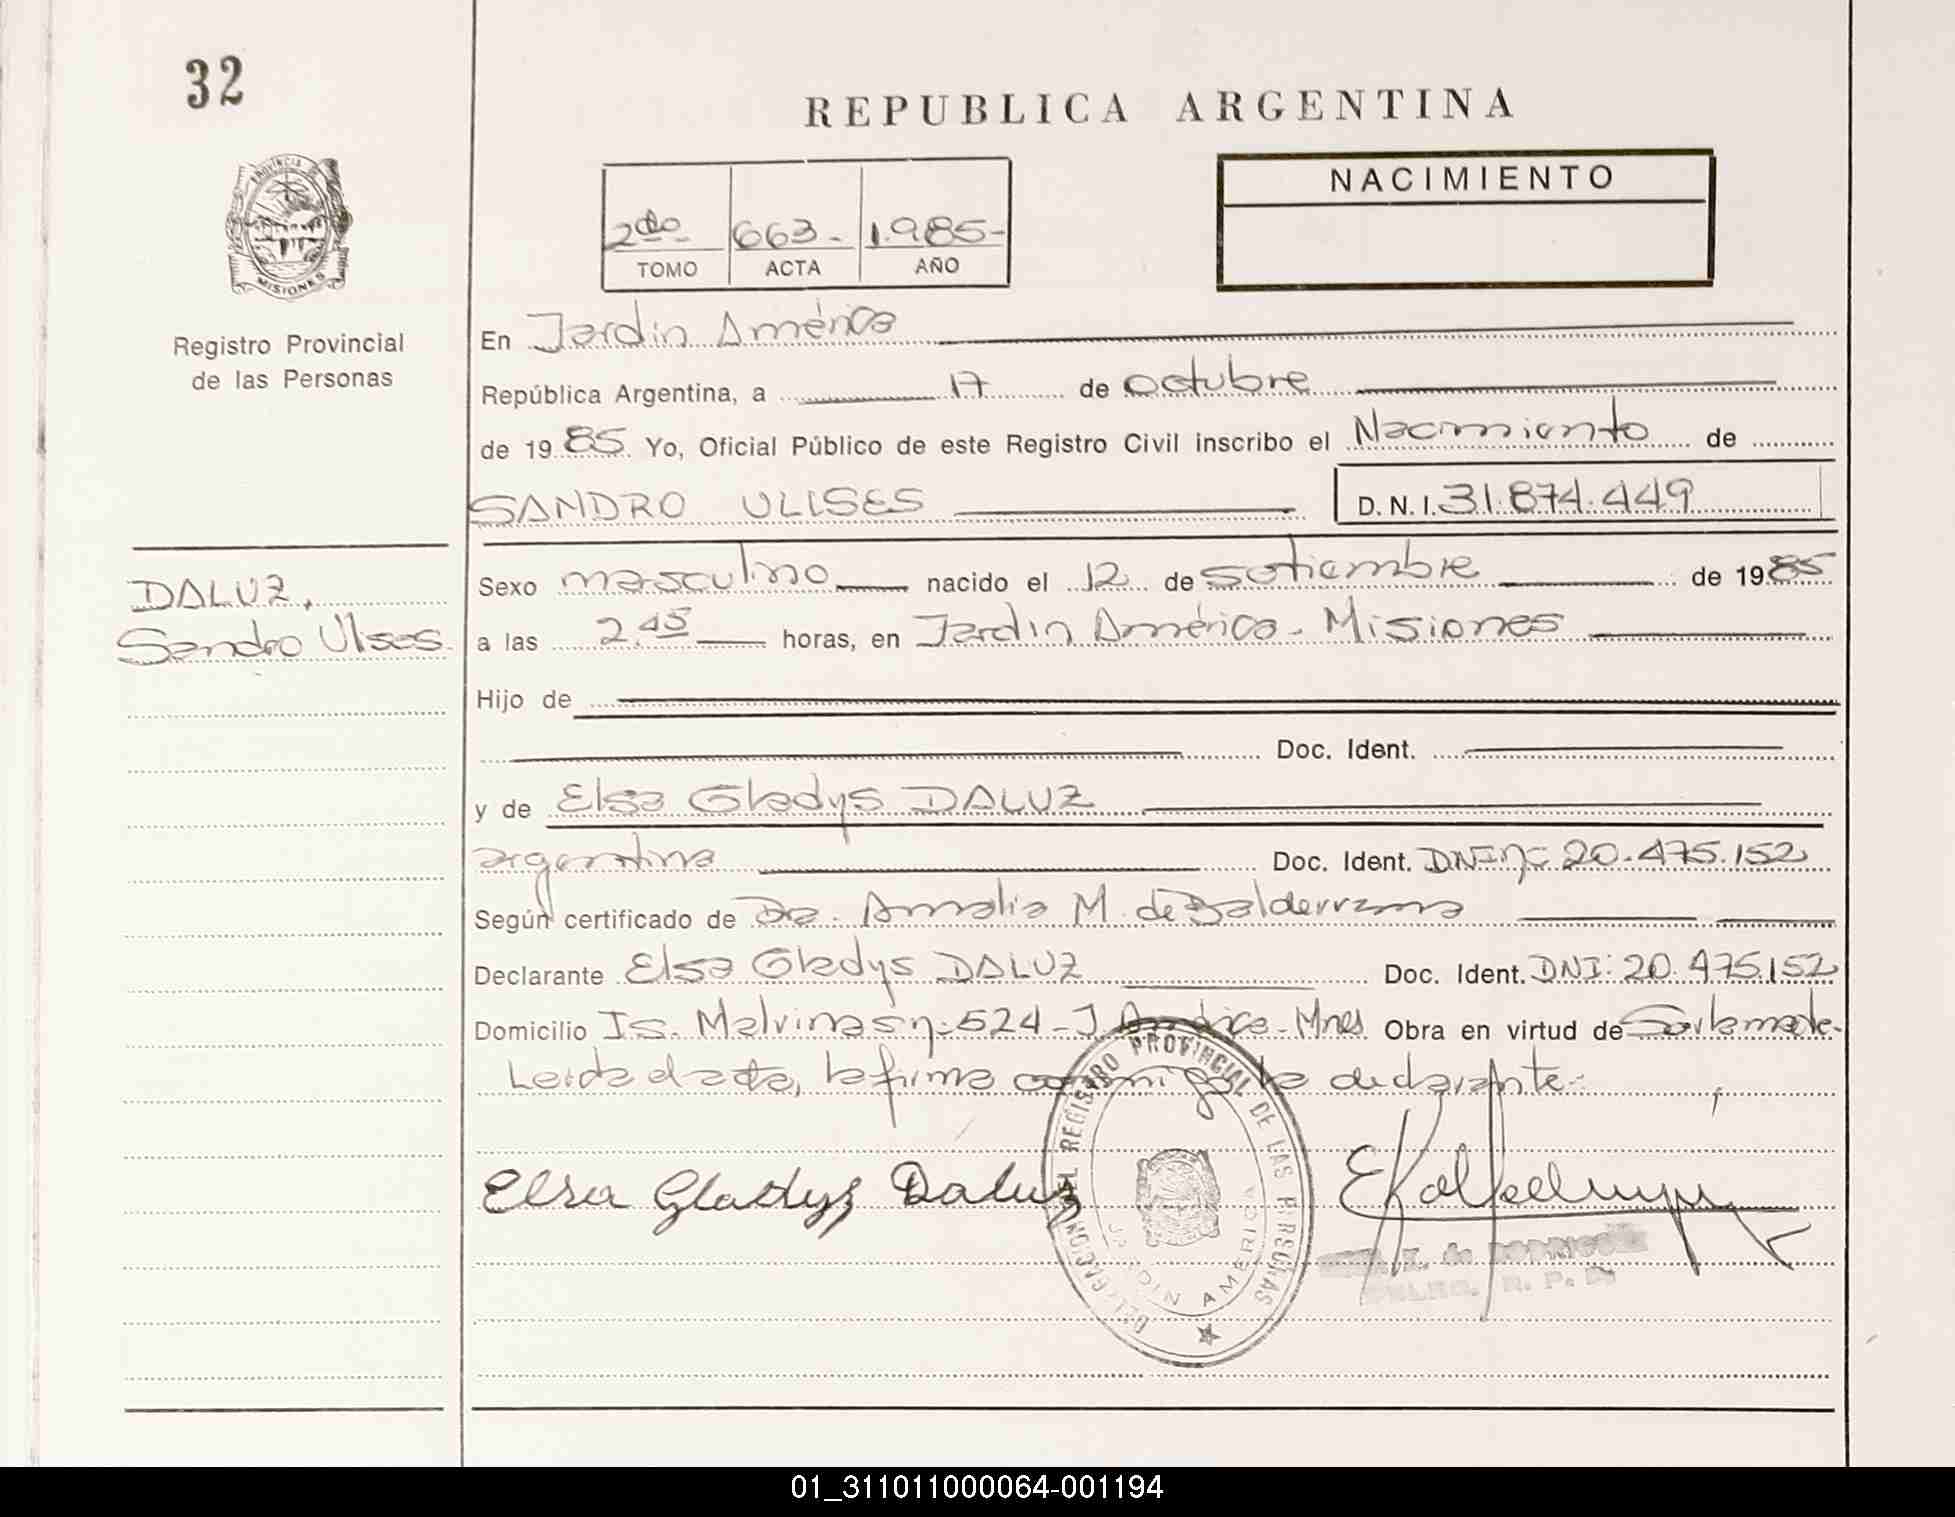 32
REPUBLICA ARGENTINA
PROVINCIA
MISIONES
Registro Provincial
de las Personas
2do 663- 1.985-
TOMO ACTA AÑO
NACIMIENTO
En Jardin América
República Argentina, a 17 de octubre
de 1985. Yo, Oficial Público de este Registro Civil inscribo el Nacimiento de
SANDRO ULISES D.N.I. 31.874.449
DALUZ,
Sandro Ulises
Sexo masculino nacido el 12 de setiembre de 1985
a las 2.45 horas, en Jardin América - Misiones
Hijo de
Doc. Ident.
y de Elsa Gladys DALUZ
argentina Doc. Ident. DNI nº 20.475.152
Según certificado de Dra. Amalia M. de Balderrama
Declarante Elsa Gladys DALUZ Doc. Ident. DNI: 20.475.152
Domicilio Is. Malvinas nº 524 - J. América - Mnes Obra en virtud de Ser la madre.
Leida el acta, la firma conmigo la declarante.
Elsa Gladys Daluz
DELEGACION DEL REGISTRO PROVINCIAL DE LAS PERSONAS
JARDIN AMERICA
de RODRIGUEZ
R. P. P.
01_311011000064-001194